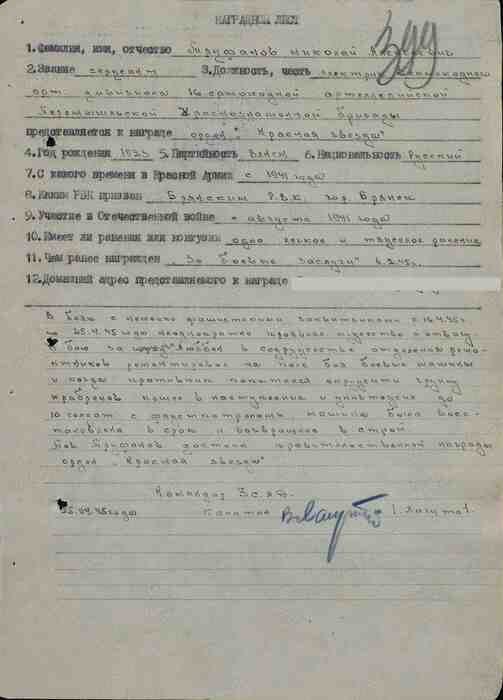 НАГРАДНОЙ ЛИСТ
399
1.Фамилия, имя, отчество Труфанов Николай
2.Звание сержант 3.Должность, часть электрик
орт. дивизиона 16 самоходной артиллерийской
Перемышльской Краснознаменной бригады
представляется к награде орден "Красная звезда"
4.Год рождения 1923 5.Партийность ВЛКСМ 6.Национальность Русский
7.С какого времени в Красной Армии с 1941 года
8.Каким РВК призван Брянским Р.В.К. гор. Брянск
9.Участие в Отечественной войне с августа 1941 года
10.Имеет ли ранения или контузии одно легкое и тяжелое ранение
11.Чем ранее награжден "За боевые заслуги" 6.2.45г.
12.Домашний адрес представляемого к награде
В боях с немецко фашистскими захватчиками с 16.4.45г.
по 25.4.45 года неоднократно проявлял мужество и отвагу
в бою за в содружестве отделения ремо-
нтников ремонтировал на поле боя боевые машины
и когда противник попытался окружить группу
храбрецов пошел в наступление и уничтожив до
10 солдат с фаустпатронами машина была восс-
тановлена в срок и возвращена в строй.
Тов. Труфанов достоин правительственной награды
орден "Красная звезда"
Командир
25.04.45года Капитан /Лагута/